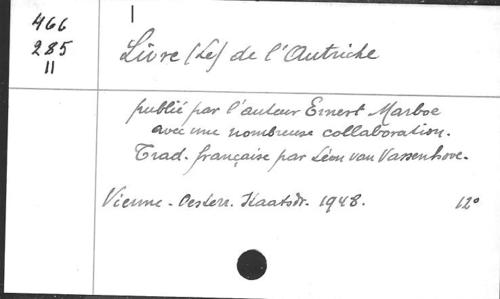 466
285
11
Livre (Le) de l'Autriche
publié par l'auteur Ernest Marboe
avec une nombreuse collaboration.
Trad. française par Léon van Vassenhove.
Vienne - Oesterr. Staatsdr. 1948. 12°